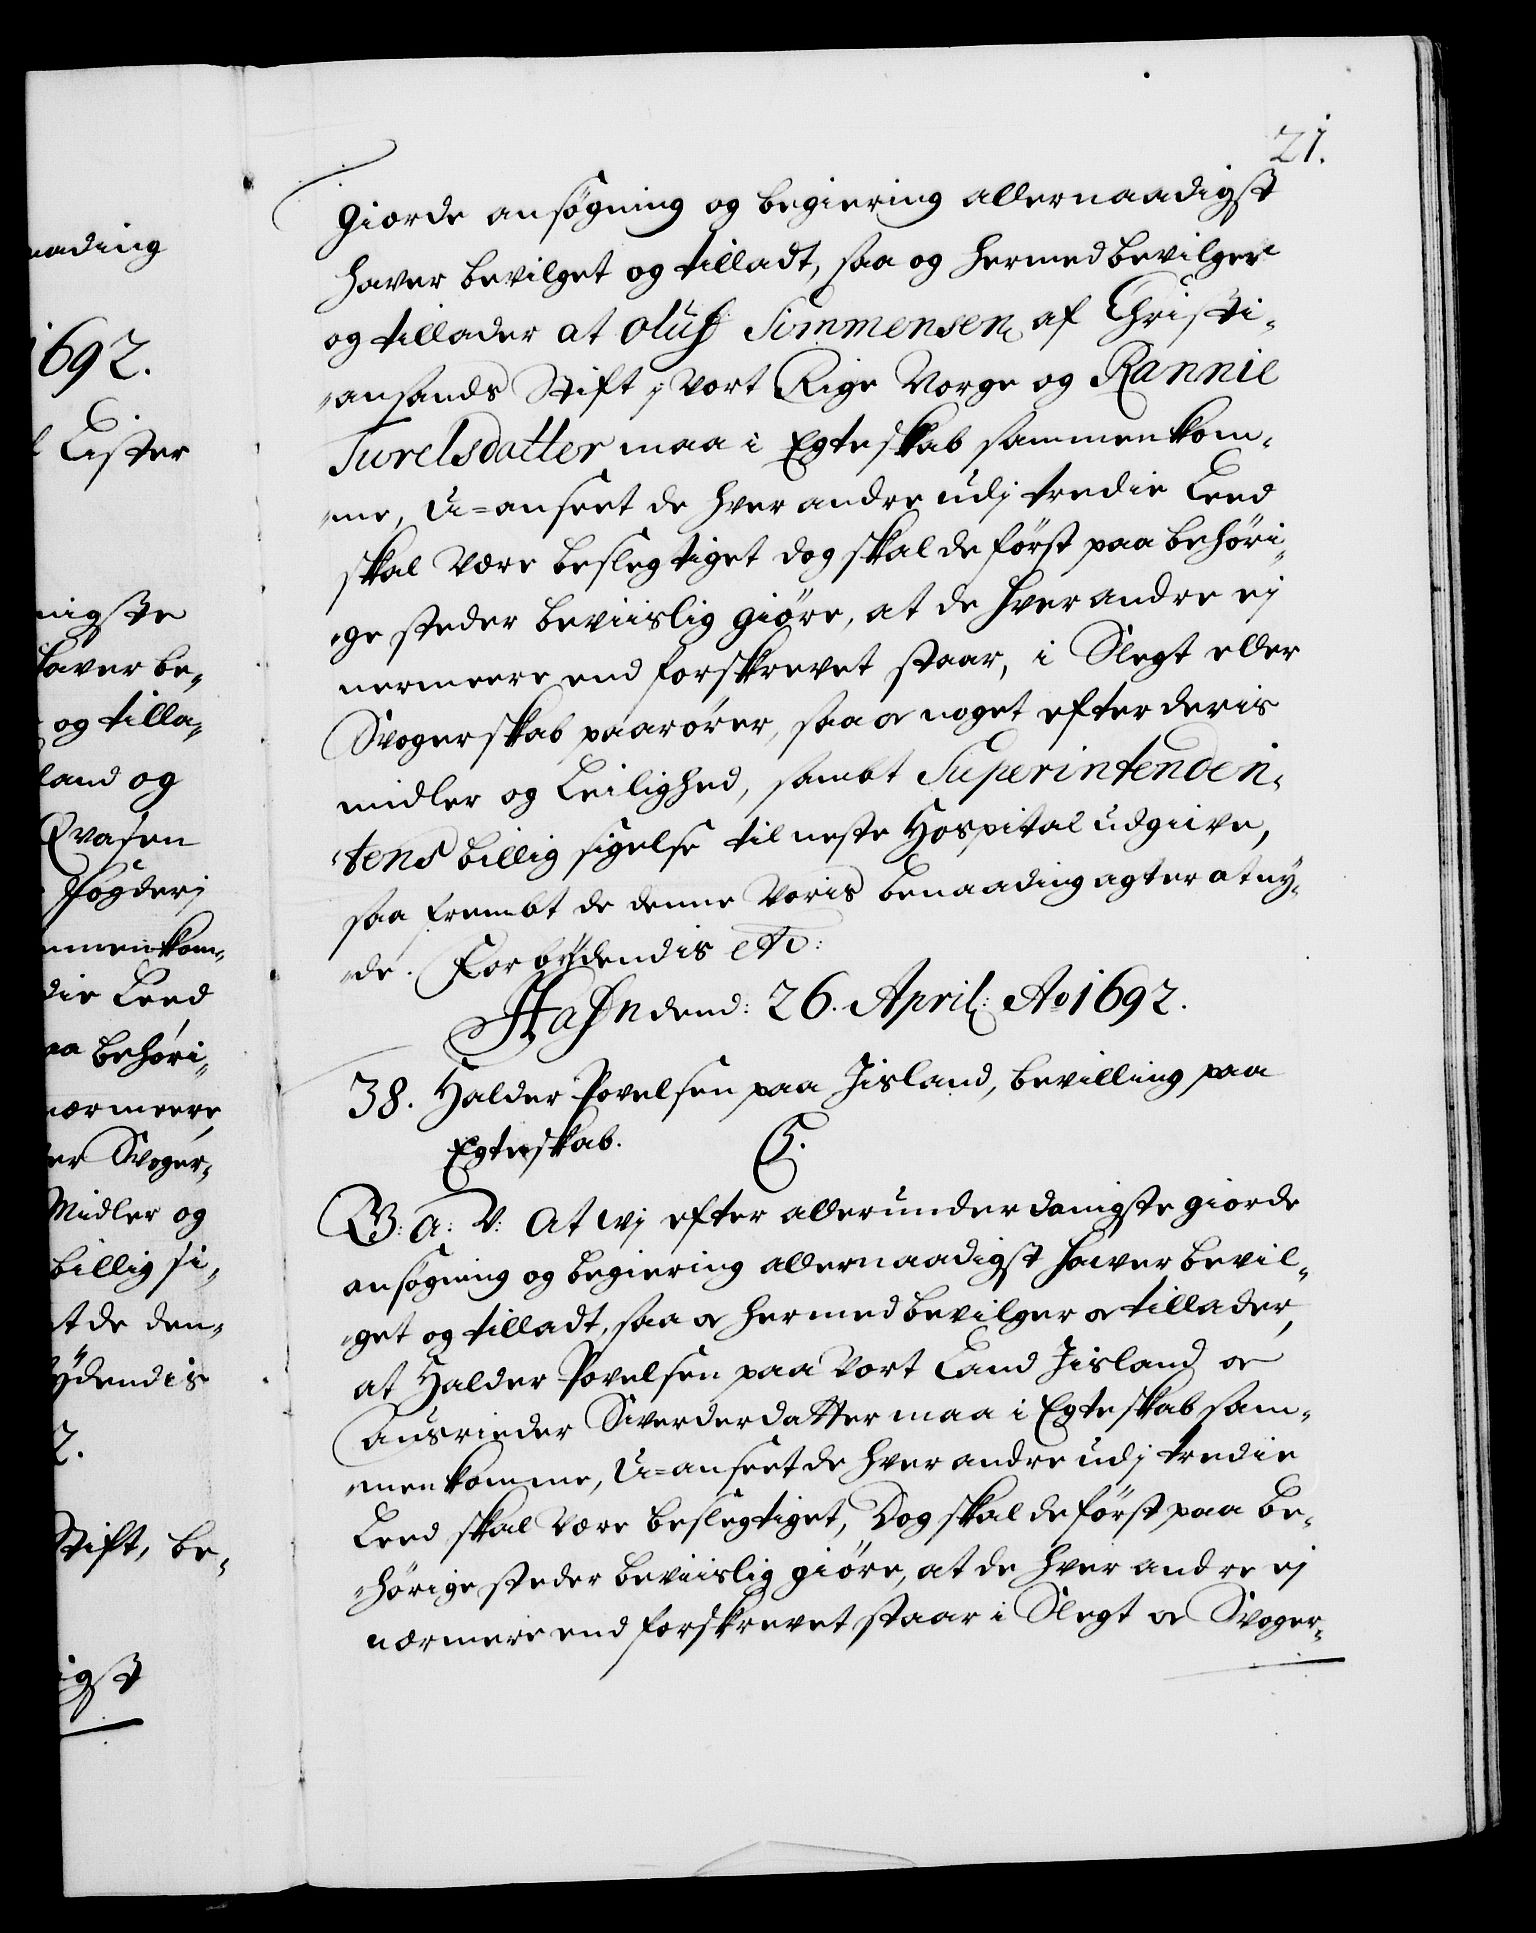 21.
giorde ansøgning og begiering allernaadigst
hafver bevilget og tilladt, saa og hermed bevilger
og tillader at Oluf Simmensen af Christi-
ansands Stift i vort Rige Norge og Rannie
Turelsdatter maa i Egteskab sammenkom-
me, U=anseet de hver andre udj tredie Leed
skal være beslegtiget dog skal de først paa behöri-
ge steder beviislig giöre, at de hver andre ej
nermeere end forskrevet staar, i Slegt eller
Svogerskab paarörer, saa og noget efter deris
midler og Leilighed, sambt Superintenden-
tens billig sigelse til neste Hospital udgiive,
saa frembt de denne Voris benaading agter at ny-
de. Forbydendis etc:
Hafn dend: 26. April: Ao 1692.
38. Halder Povelsen paa Jisland, bevilling paa
Egteskab. G.
G: a: V: At wj efter allerunderdanigste giorde
ansögning og begiering allernaadigst hafver bevil-
get og tilladt, saa og hermed bevilger og tillader,
at Halder Povelsen paa Vort Land Jisland og
Ausrieder Siverderdatter maa i Egteskab sam-
menkomme, U=anseet de hver andre udj tredie
Leed skal være beslegtiget, Dog skal de först paa be-
hörige steder beviislig giöre, at de hver andre ej
nærmere end forskrevet staar i Slegt og Svoger-
naading
1692.
Lister
nigste
hafver be-
og tilla-
land og
Qvasen
Fögderj
mmenkom-
die Leed
aa behöri-
nærmeere
er Svoger-
Midler og
billig si-
t de den-
ydendis
2.
Stift, be-
igst